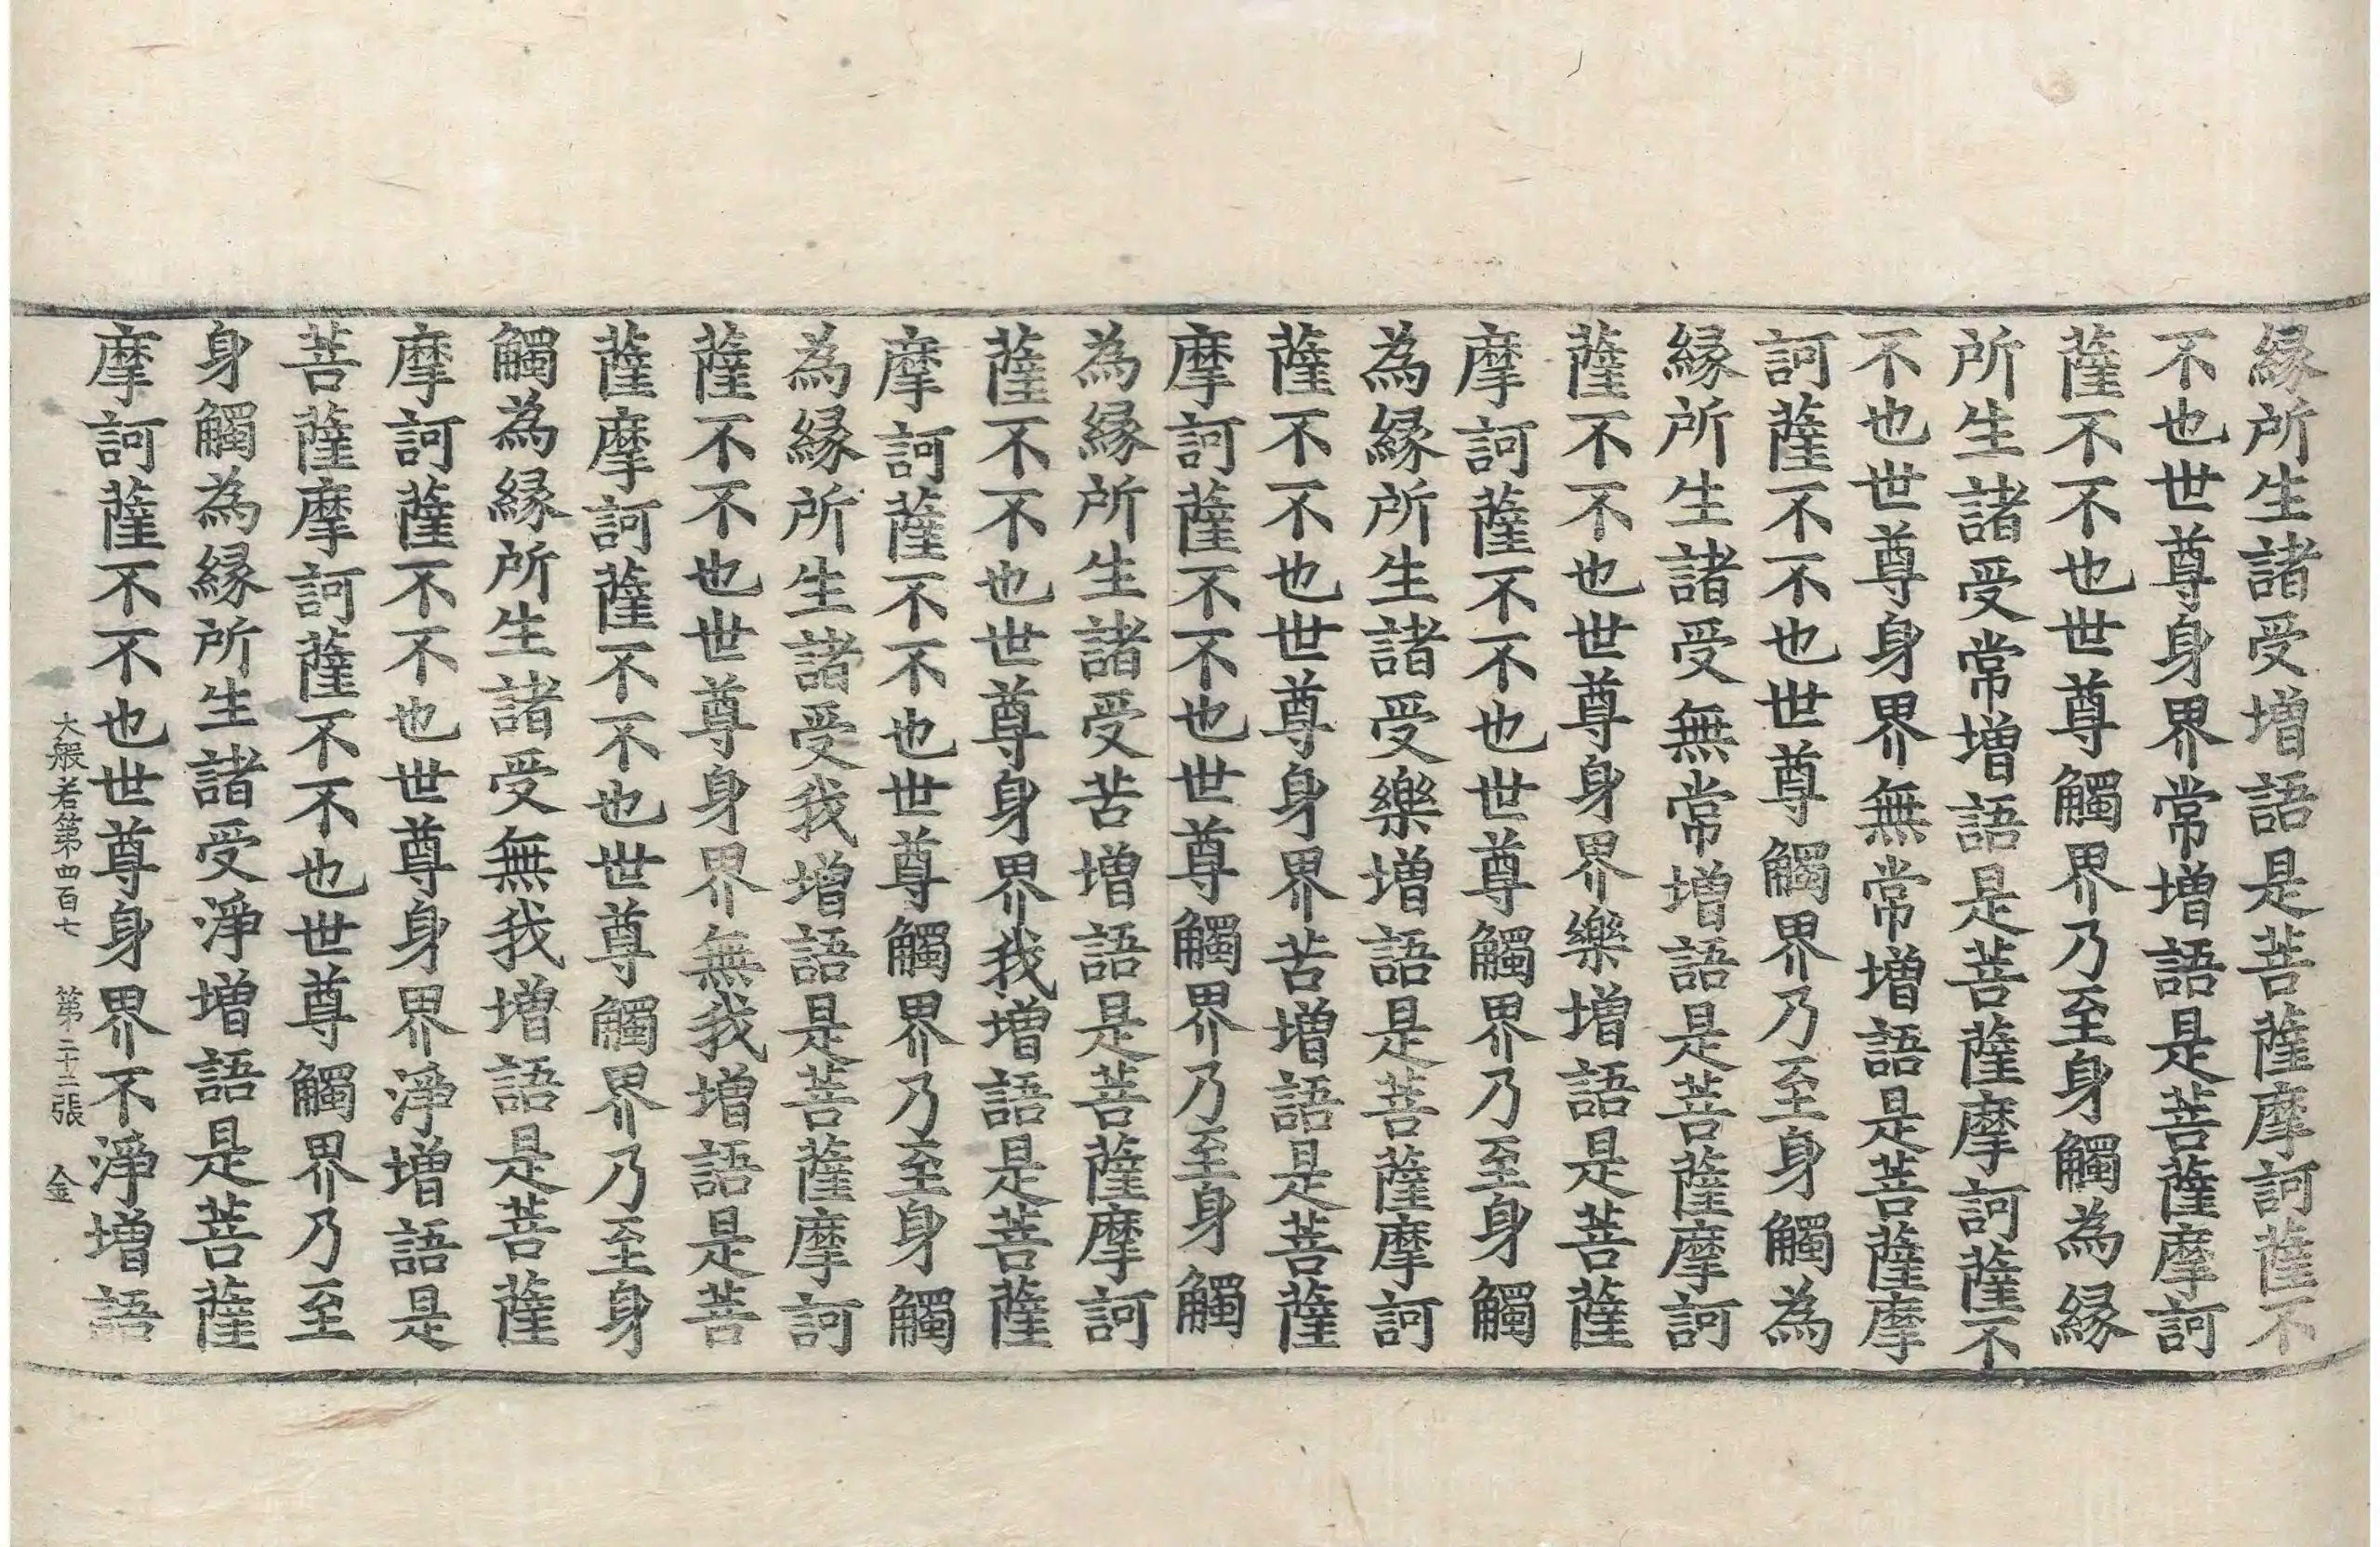 縁所生諸受增語是菩薩摩訶薩不
不也世尊身界常增語是菩薩摩訶
薩不不也世尊觸界乃至身觸為縁
所生諸受常增語是菩薩摩訶薩不
不也世尊身界無常增語是菩薩摩
訶薩不不也世尊觸界乃至身觸為
縁所生諸受無常增語是菩薩摩訶
薩不不也世尊身界樂增語是菩薩
摩訶薩不不也世尊觸界乃至身觸
為縁所生諸受樂增語是菩薩摩訶
薩不不也世尊身界苦增語是菩薩
摩訶薩不不也世尊觸界乃至身觸
為縁所生諸受苦增語是菩薩摩訶
薩不不也世尊身界我增語是菩薩
摩訶薩不不也世尊觸界乃至身觸
為縁所生諸受我增語是菩薩摩訶
薩不不也世尊身界無我增語是菩
薩摩訶薩不不也世尊觸界乃至身
觸為縁所生諸受無我增語是菩薩
摩訶薩不不也世尊身界淨增語是
菩薩摩訶薩不不也世尊觸界乃至
身觸為縁所生諸受淨增語是菩薩
摩訶薩不不也世尊身界不淨增語
大般若第四百七 第二十二張 金